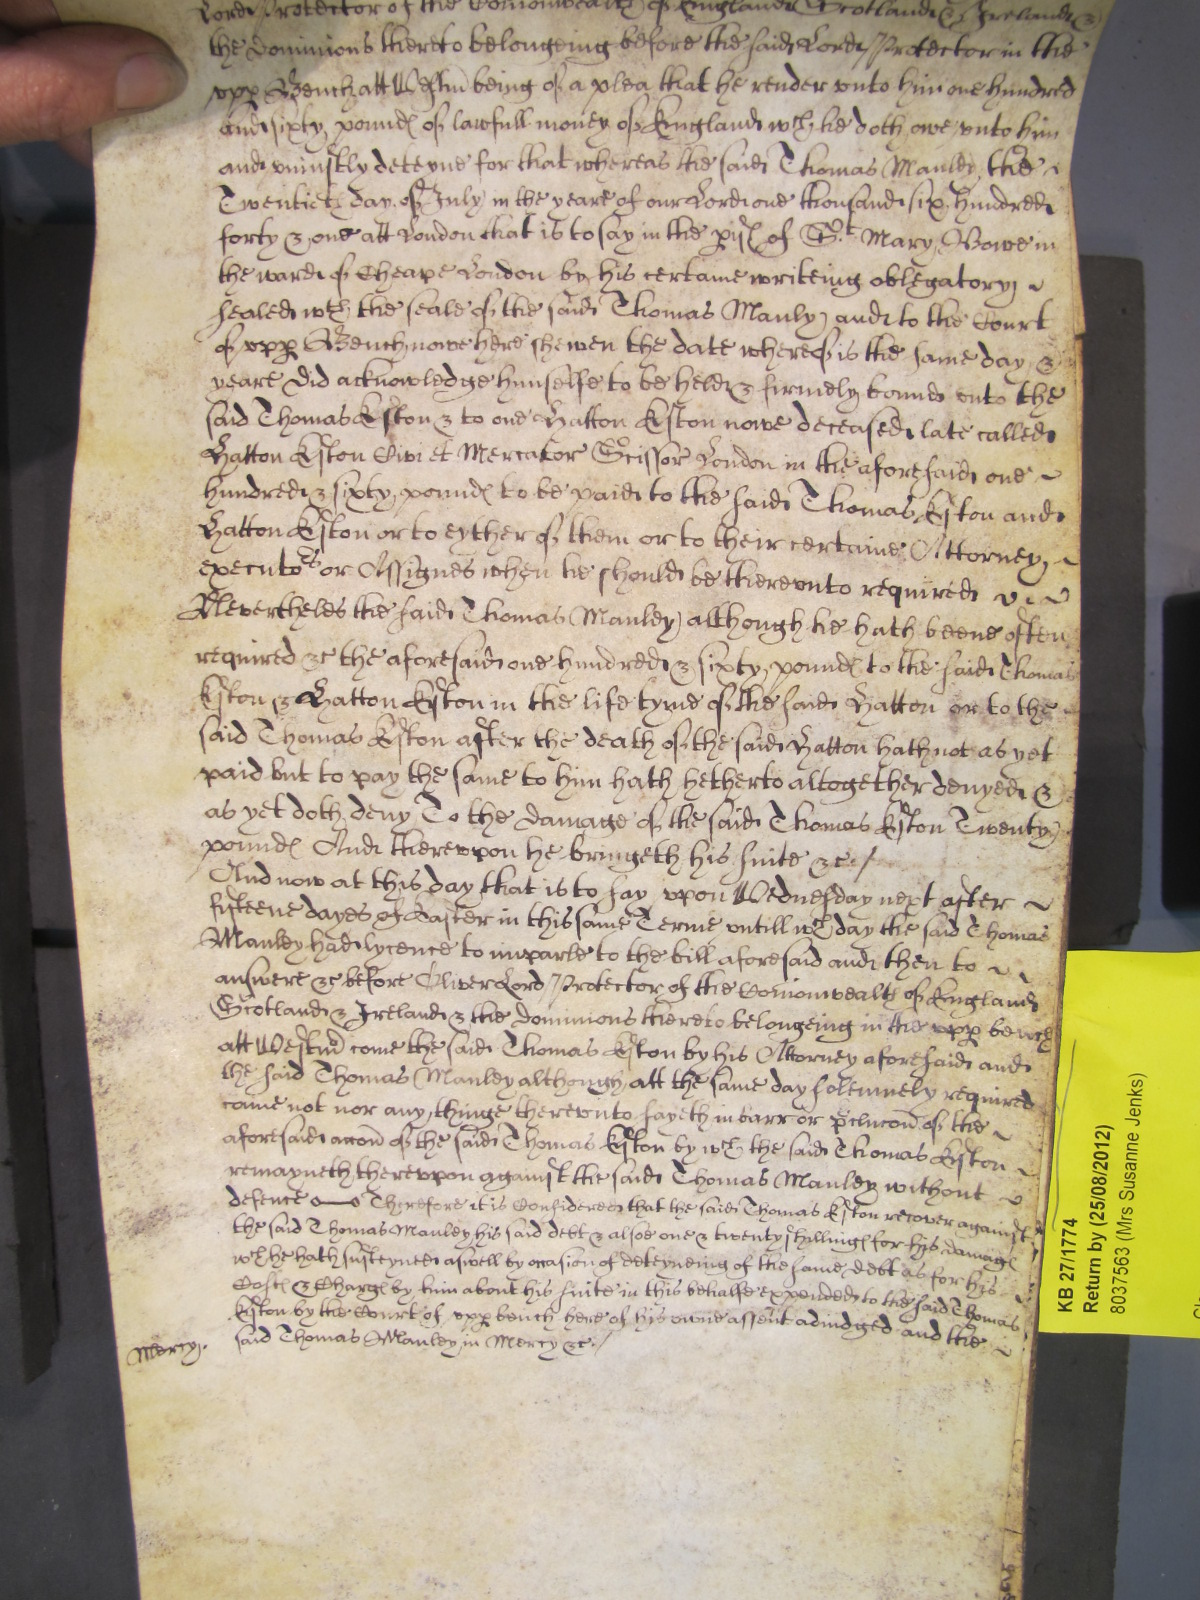 Lord Protector of the Comonwealth of England Scotland & Ireland &
the Dominions thereto belongeing before the said Lord Protector in the
upp Bench att Westm being of a plea that he render unto him one hundred
and sixty pound of lawfull money of England wch he doth owe unto him
and uniustly deteyne for that whereas the said Thomas Manley the
Twentieth day of July in the yeare of our Lord one thousand six hundred
forty & one att London that is to say in the pish of St Mary Bowe in
the ward of Cheape London by his certaine writeing oblegatory
sealed wth the seale of the said Thomas Manly and to the Court
of upp Bench nowe here shewen the date whereof is the same day &
yeare did acknowledge himselfe to be held & firmely bound unto the
said Thomas Eston & to one Hatton Eston nowe deceased late called
Hatton Eston Civi et Mercator Scissor London in the aforesaid one
hundred & sixty pound to be paid to the said Thomas Eston and
Hatton Eston or to eyther of them or to their certaine Attorney
executors or Assignes when he should be thereunto required
Nevertheles the said Thomas Manley although he hath beene often
required &c the aforesaid one hundred & sixty pound to the said Thomas
Eston & Hatton Eston in the life tyme of the said Hatton or to the
said Thomas Eston after the death of the said Hatton hath not as yet
paid but to pay the same to him hath hetherto altogether denyed &
as yet doth deny To the damage of the said Thomas Eston Twenty
pound And thereupon he bringeth his suite &c /
And now at this day that is to say upon Wednesday next after
fifteene dayes of Easter in this same Terme untill wch day the said Thomas
Manley had lycence to imparle to the bill aforesaid and then to
answere &c before Oliver Lord Protector of the Comonwealth of England
Scotland & Ireland & the Dominions thereto belongeing in the upp bench
att Westm come the said Thomas Eston by his Attorney aforesaid and
the said Thomas Manley although att the same day solemnely required
came not nor any thinge thereunto sayeth in barr or pclucon of the
aforesaid accon of the said Thomas Eston by wch the said Thomas Eston
remayneth thereupon against the said Thomas Manley without
defence Therefore it is Considered that the said Thomas Eston recover against
the said Thomas Manley his said debt & alsoe one & twenty shilling for his damage
wch he hath susteyned aswell by occasion of deteyneing of the same debt as for his
Cost & Charge by him about his suite in this behalfe expended to the said Thomas
Eston by the Court of upp bench here of his owne assent adiudged and the
said Thomas Manley in Mercy &c /
Mercy
KB 27/1774
Return by (25/08/2012)
8037563 (Mrs Susanne Jenks)